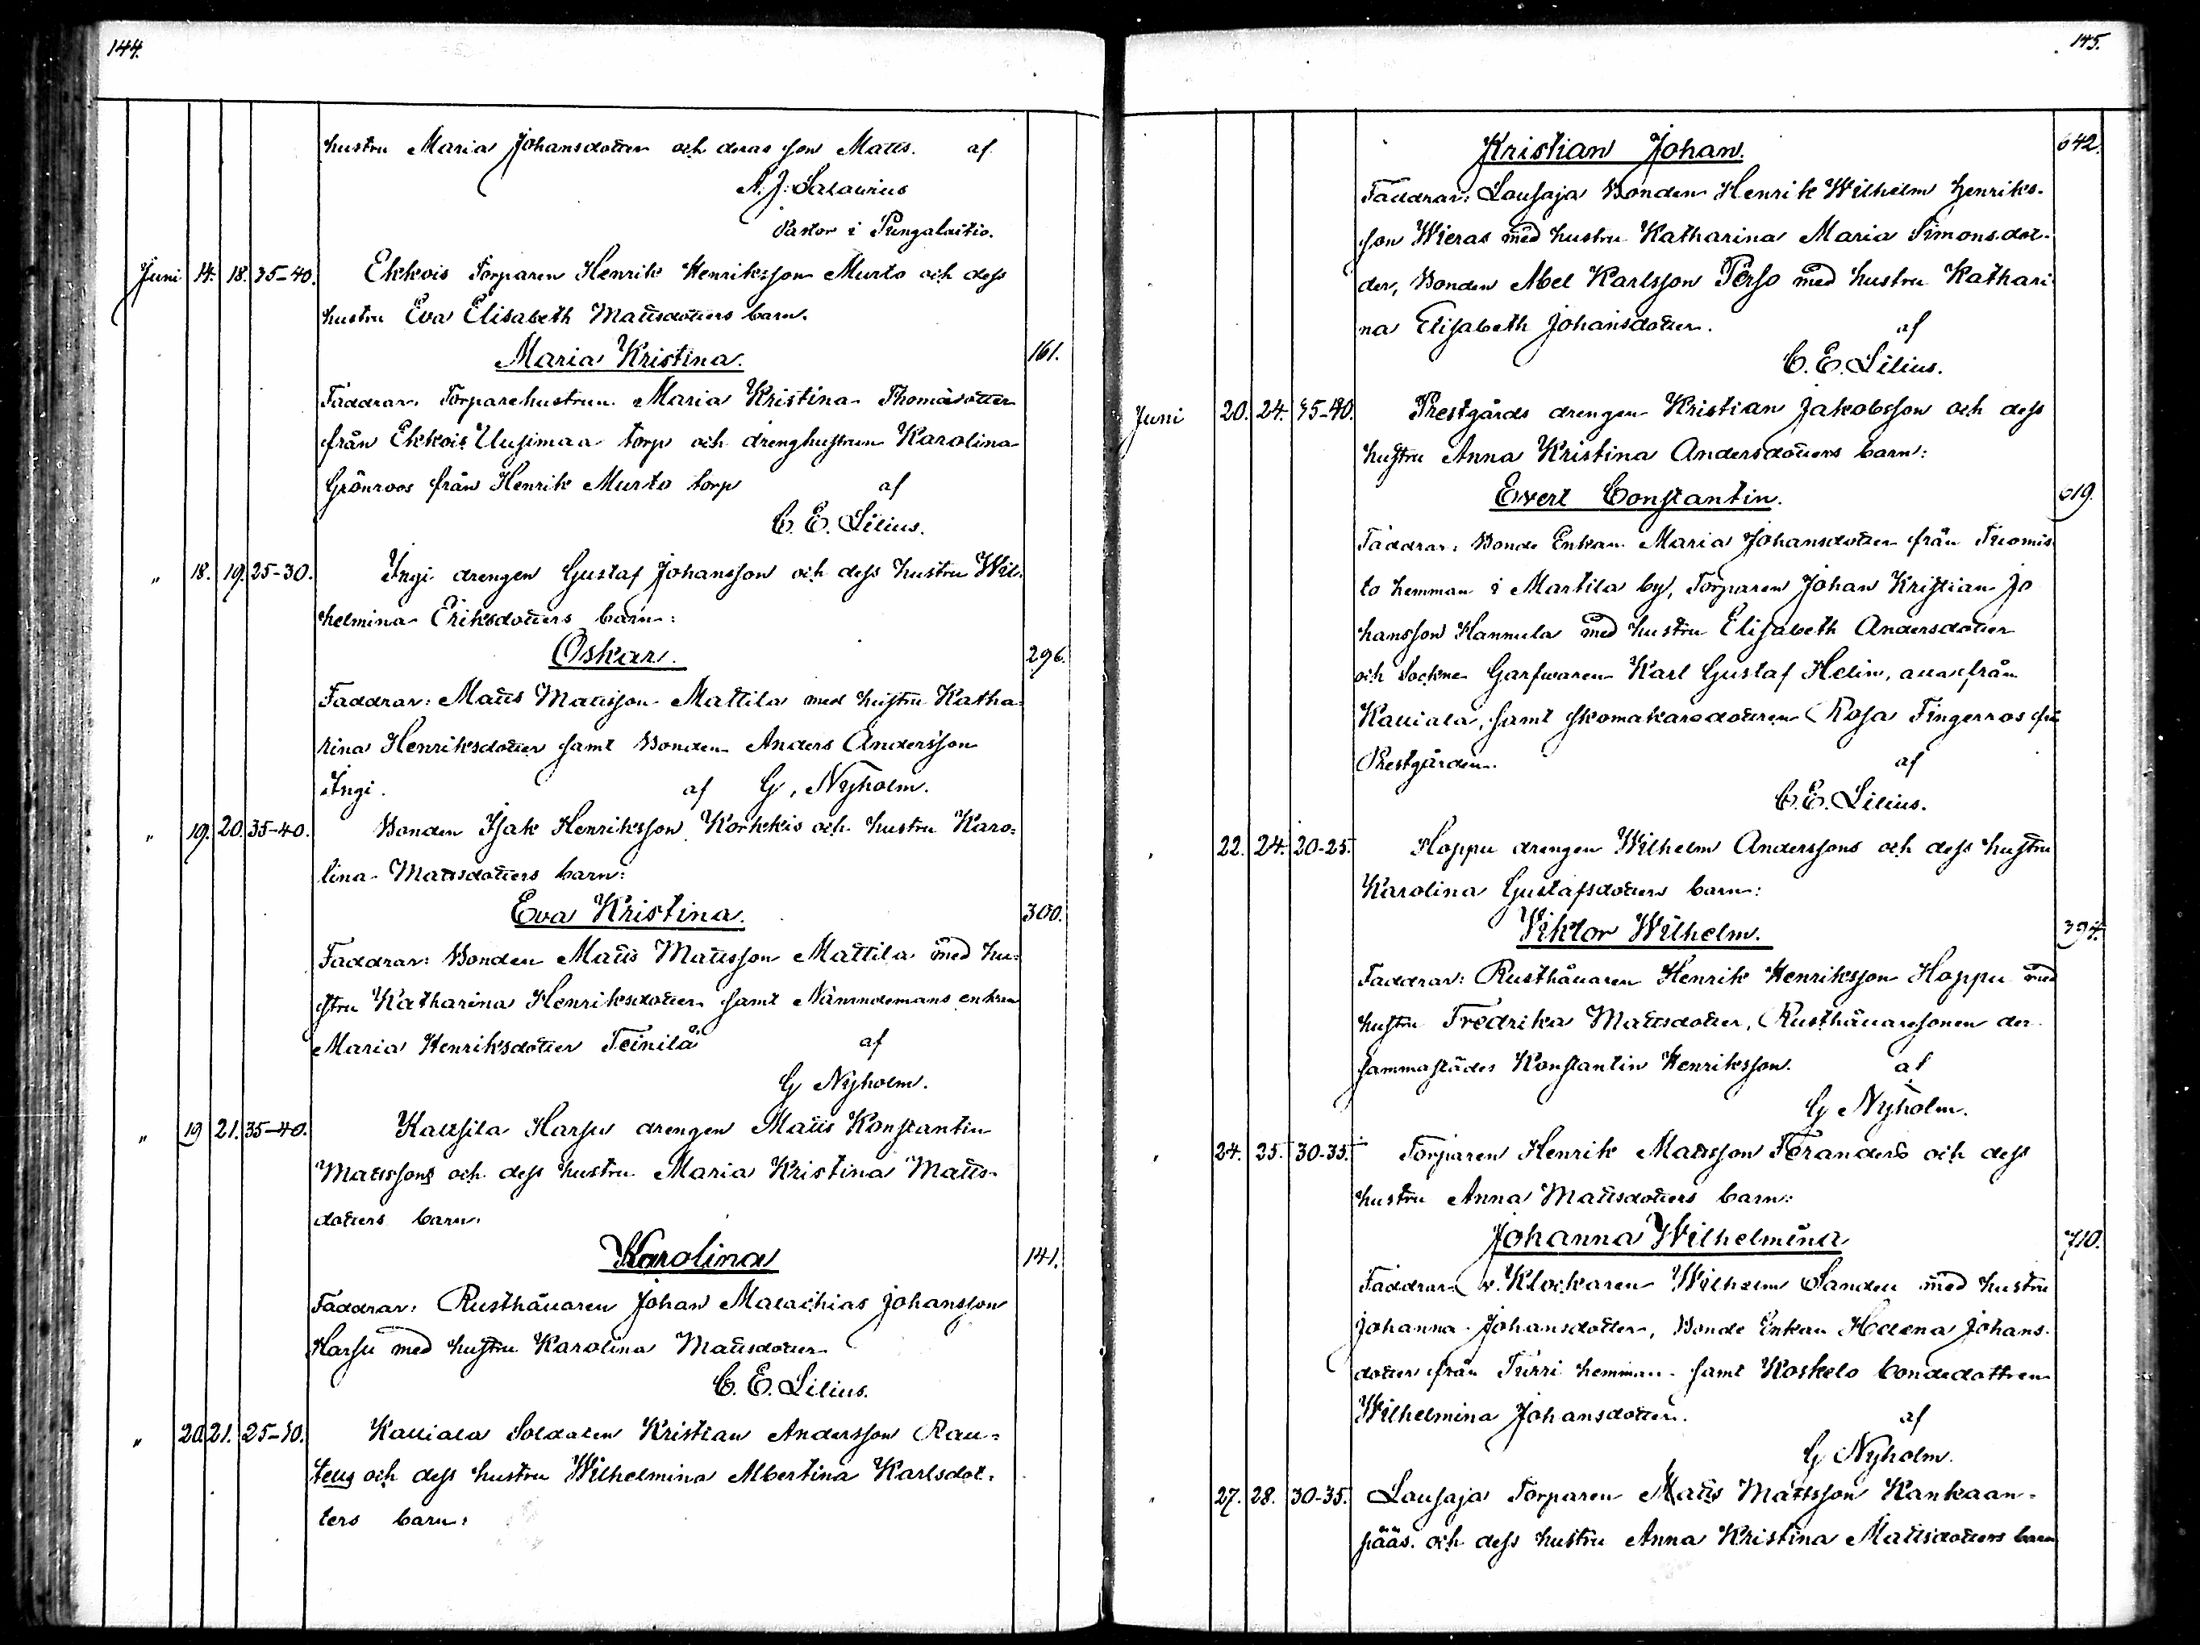 144.
hustru Maria Johansdotter och deras son Matts. af
A. J. Salovius
Pastor i Pungalaitio.
Juni 14. 18. 35-40. Ekkois Torparen Henrik Henriksson Murto och dess
hustru Eva Elisabeth Mattsdotters barn.
Maria Kristina. 161.
Faddrar: Torparehustrun Maria Kristina Thomasdotter
från Ekkois Uusimaa torp och drenghustrun Karolina
Grönroos från Henrik Murto torp af
C. E. Lilius.
" 18. 19. 25-30. Yngi drengen Gustaf Johansson och dess hustru Wil-
helmina Eriksdotters barn:
Oskar. 296.
Faddrar: Matts Mattsson Mattila med hustru Katha-
rina Henriksdotter samt Bonden Anders Andersson
Yngi. af G. Nyholm.
" 19. 20. 35-40. Bonden Isak Henriksson Korkkis och hustru Karo-
lina Mattsdotters barn:
Eva Kristina. 300.
Faddrar: Bonden Matts Mattsson Mattila med hu-
stru Katharina Henriksdotter samt Nämndemans enkan
Maria Henriksdotter Teinilä af
G Nyholm.
" 19 21. 35-40. Kausila Harsu drengen Matts Konstantin
Mattssons och dess hustru Maria Kristina Matts-
dotters barn:
Karolina 141.
Faddrar: Rusthållaren Johan Malachias Johansson
Harsu med hustru Karolina Mattsdotter
C. E. Lilius.
" 20. 21. 25-30. Kalliala Soldaten Kristian Andersson Rau-
tells och dess hustru Wilhelmina Albertina Karlsdot-
ters barn:
145.
Kristian Johan. 642.
Faddrar: Lausaja Bonden Henrik Wilhelm Henriks-
son Wieras med hustru Katharina Maria Simonsdot-
der, Bonden Abel Karlsson Perho med hustru Kathari
na Elisabeth Johansdotter. af
C. E. Lilius.
Juni 20. 24. 35-40. Prestgårds drengen Kristian Jakobsson och dess
hustru Anna Kristina Andersdotters barn:
Evert Constantin. 619.
Faddrar: Bonde Enkan Maria Johansdotter från
to hemman i Martila by, Torparen Johan Kristian Jo
hansson Hannula med hustru Elisabeth Andersdotter
och Sockne Garfwaren Karl Gustaf Helin, alla från
Kalliala, samt skomakaredottren Rosa Fingerroos frå
Prestgården. af
C. E. Lilius.
" 22. 24. 20-25. Hoppu drengen Wilhelm Anderssons och dess hustru
Karolina Gustafsdotters barn:
Viktor Wilhelm. 394.
Faddrar: Rusthållaren Henrik Henriksson Hoppu med
hustru Fredrika Mattsdotter, Rusthållaresonen der
sammastädes Konstantin Henriksson. af
G Nyholm.
" 24. 25. 30-35. Torparen Henrik Mattsson Foranders och dess
hustru Anna Mattsdotters barn:
Johanna Wilhelmina 710.
Faddrar: v. Klockaren Wilhelm Sandell med hustru
Johanna Johansdotter, Bonde Enkan Helena Johans-
dotter från Pirri hemman samt Koskelo bondedottren
Wilhelmina Johansdotter. af
G Nyholm.
" 27. 28. 30-35. Lausaja Torparen Matts Mattsson Kankaan-
pääs och dess hustru Anna Kristina Mattsdotters barn